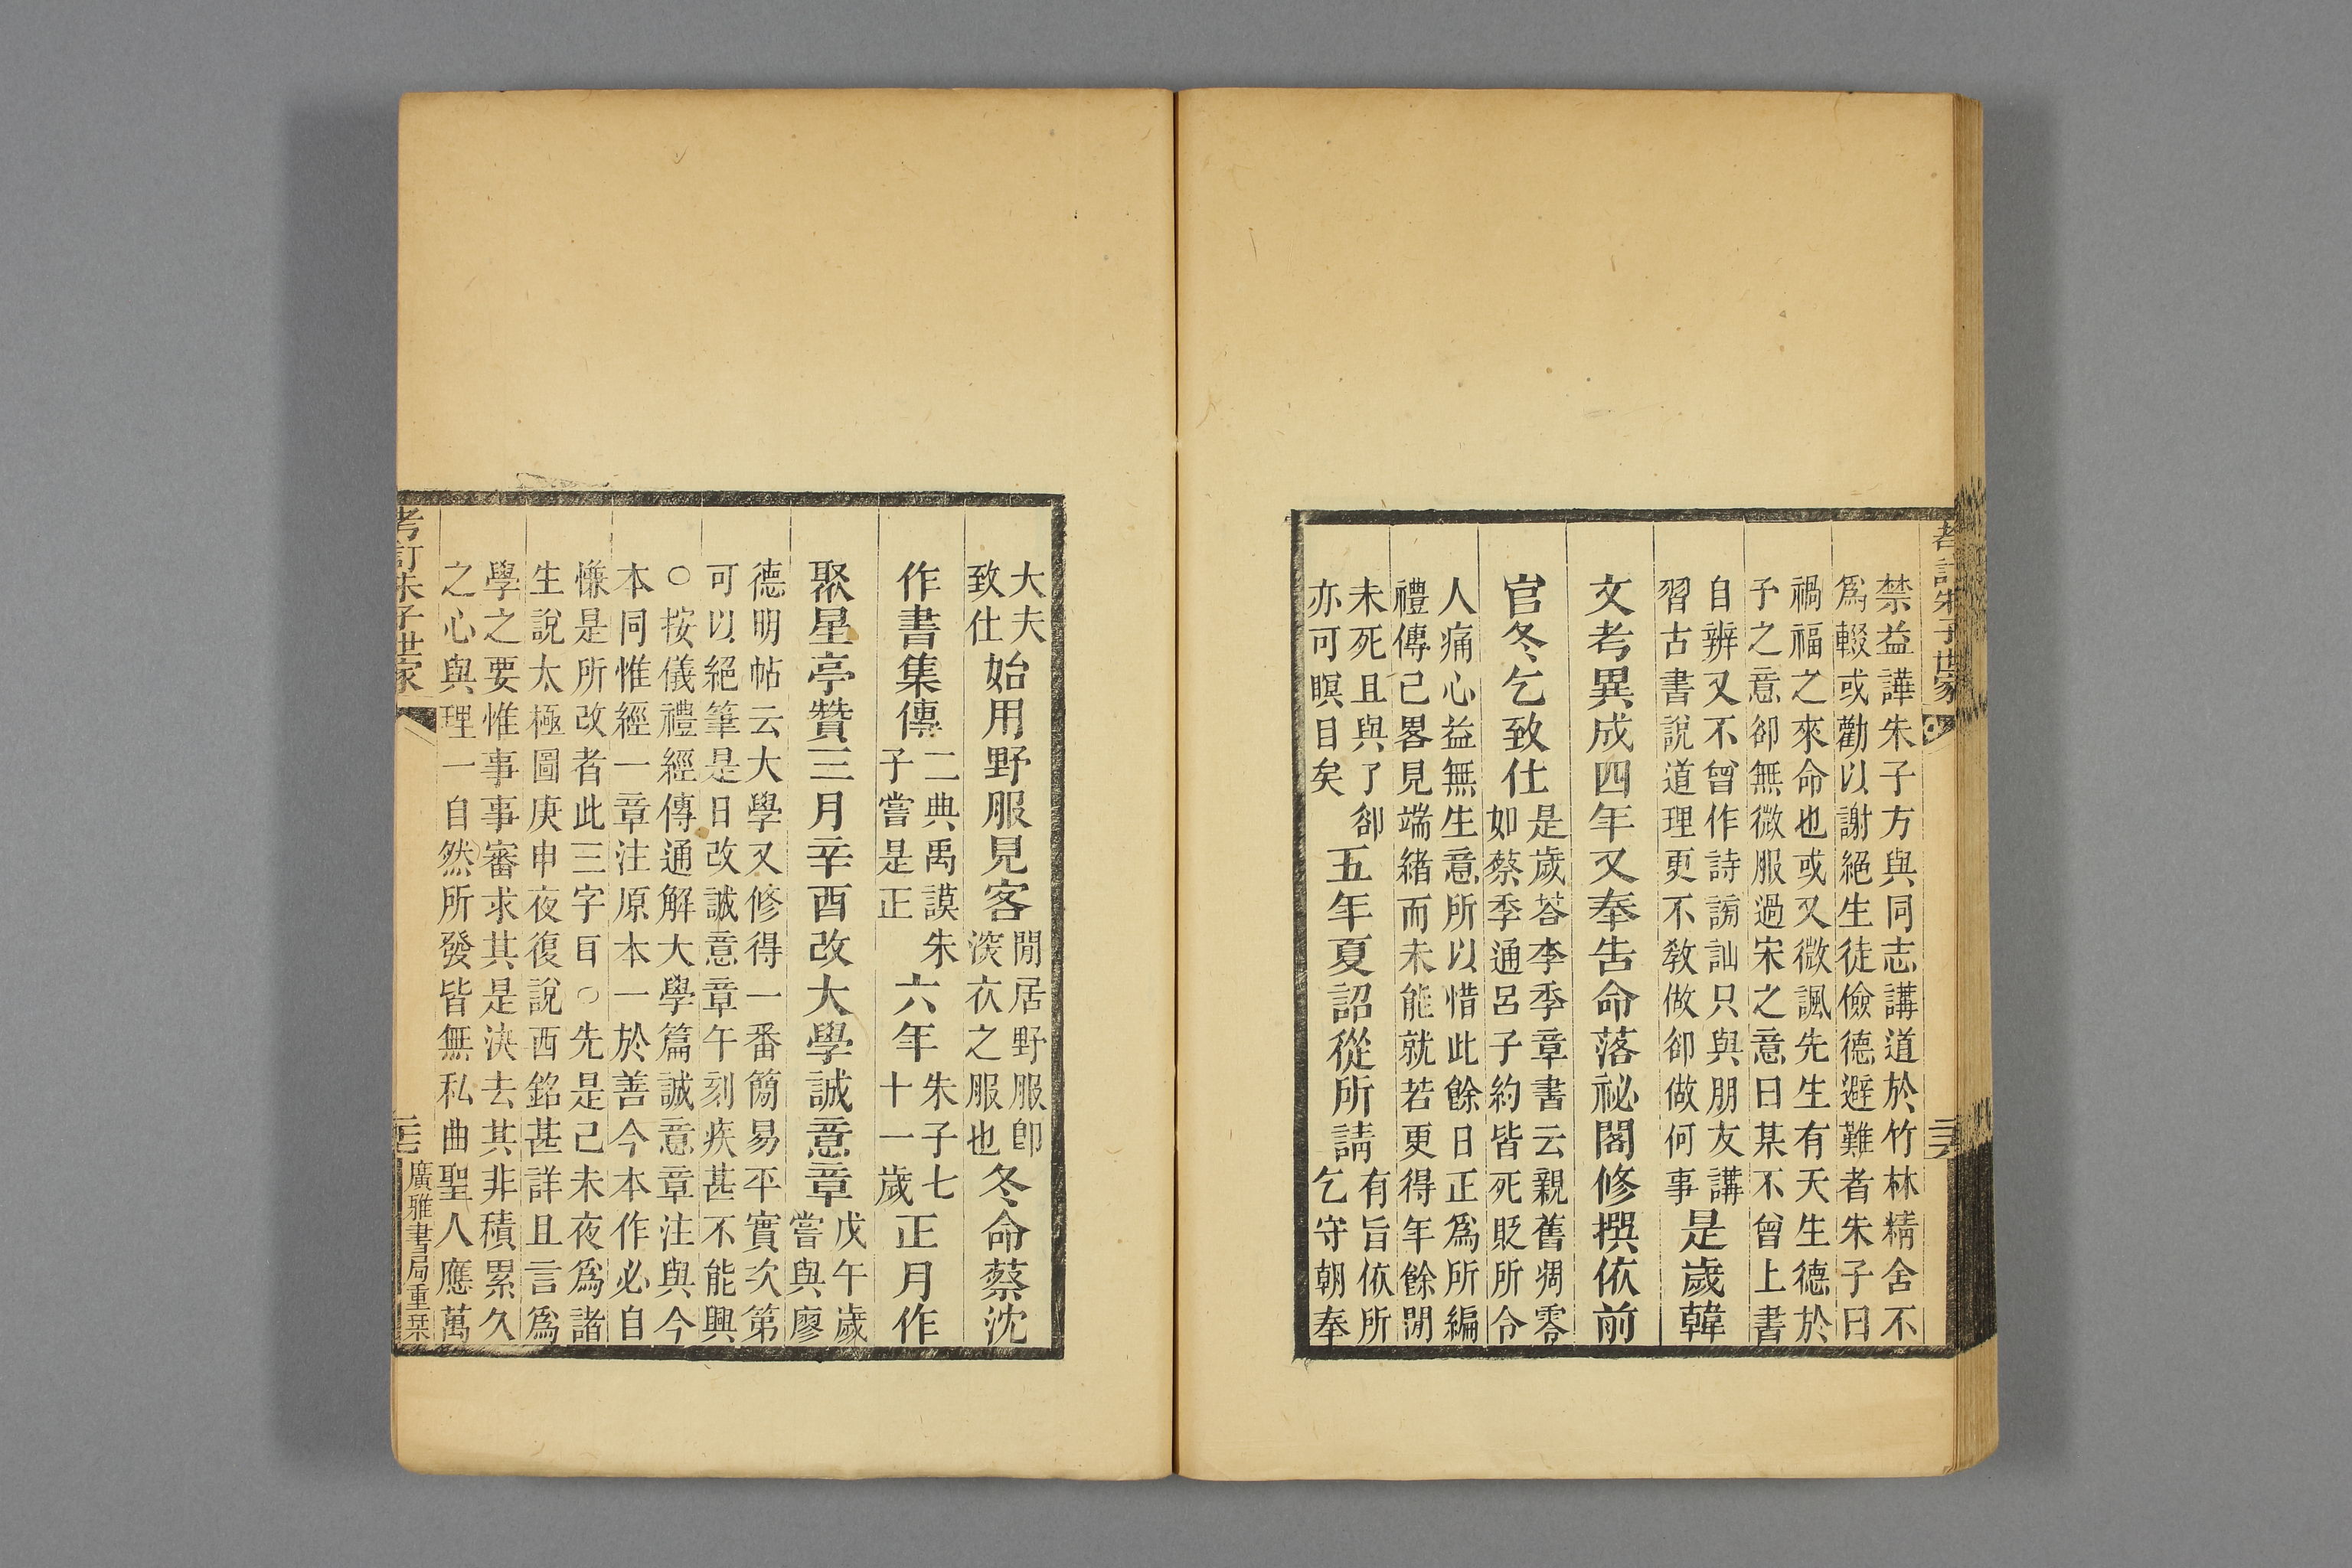 考訂朱子世家
禁益譁朱子方與同志講道於竹林精舍不
爲輟或勸以謝絕生徒儉德避難者朱子曰
禍福之來命也或又微諷先生有天生德於
予之意卻無微服過宋之意曰某不曾上書
自辨又不曾作詩謗訕只與朋友講
習古書說道理更不敎做卻做何事是歲韓
文考異成四年又奉吿命落祕閣修撰依前
官冬乞致仕是歲荅李季章書云親舊凋零
如蔡季通呂子約皆死貶所令
人痛心益無生意所以惜此餘日正爲所編
禮傳已畧見端緒而未能就若更得年餘閒
未死且與了卻
亦可瞑目矣五年夏詔從所請有旨依所
乞守朝奉
大夫
致仕始用野服見客閒居野服卽
深衣之服也冬命蔡沈
作書集傳二典禹謨朱
子嘗是正六年朱子七
十一歲正月作
聚星亭贊三月辛酉改大學誠意章戊午歲
嘗與廖
德明帖云大學又修得一番簡易平實次第
可以絕筆是日改誠意章午刻疾甚不能興
○按儀禮經傳通解大學篇誠意章注與今
本同惟經一章注原本一於善今本作必自
慊是所改者此三字耳○先是己未夜爲諸
生說太極圖庚申夜復說西銘甚詳且言爲
學之要惟事事審求其是決去其非積累久
之心與理一自然所發皆無私曲聖人應萬
考訂朱子世家
廣雅書局重栞